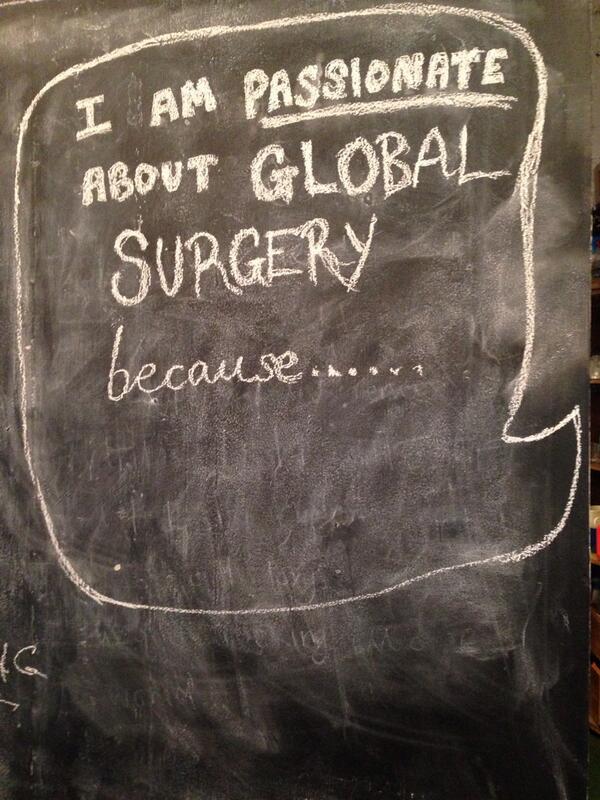 I AM PASSIONATE
ABOUT GLOBAL
SURGERY
because.......